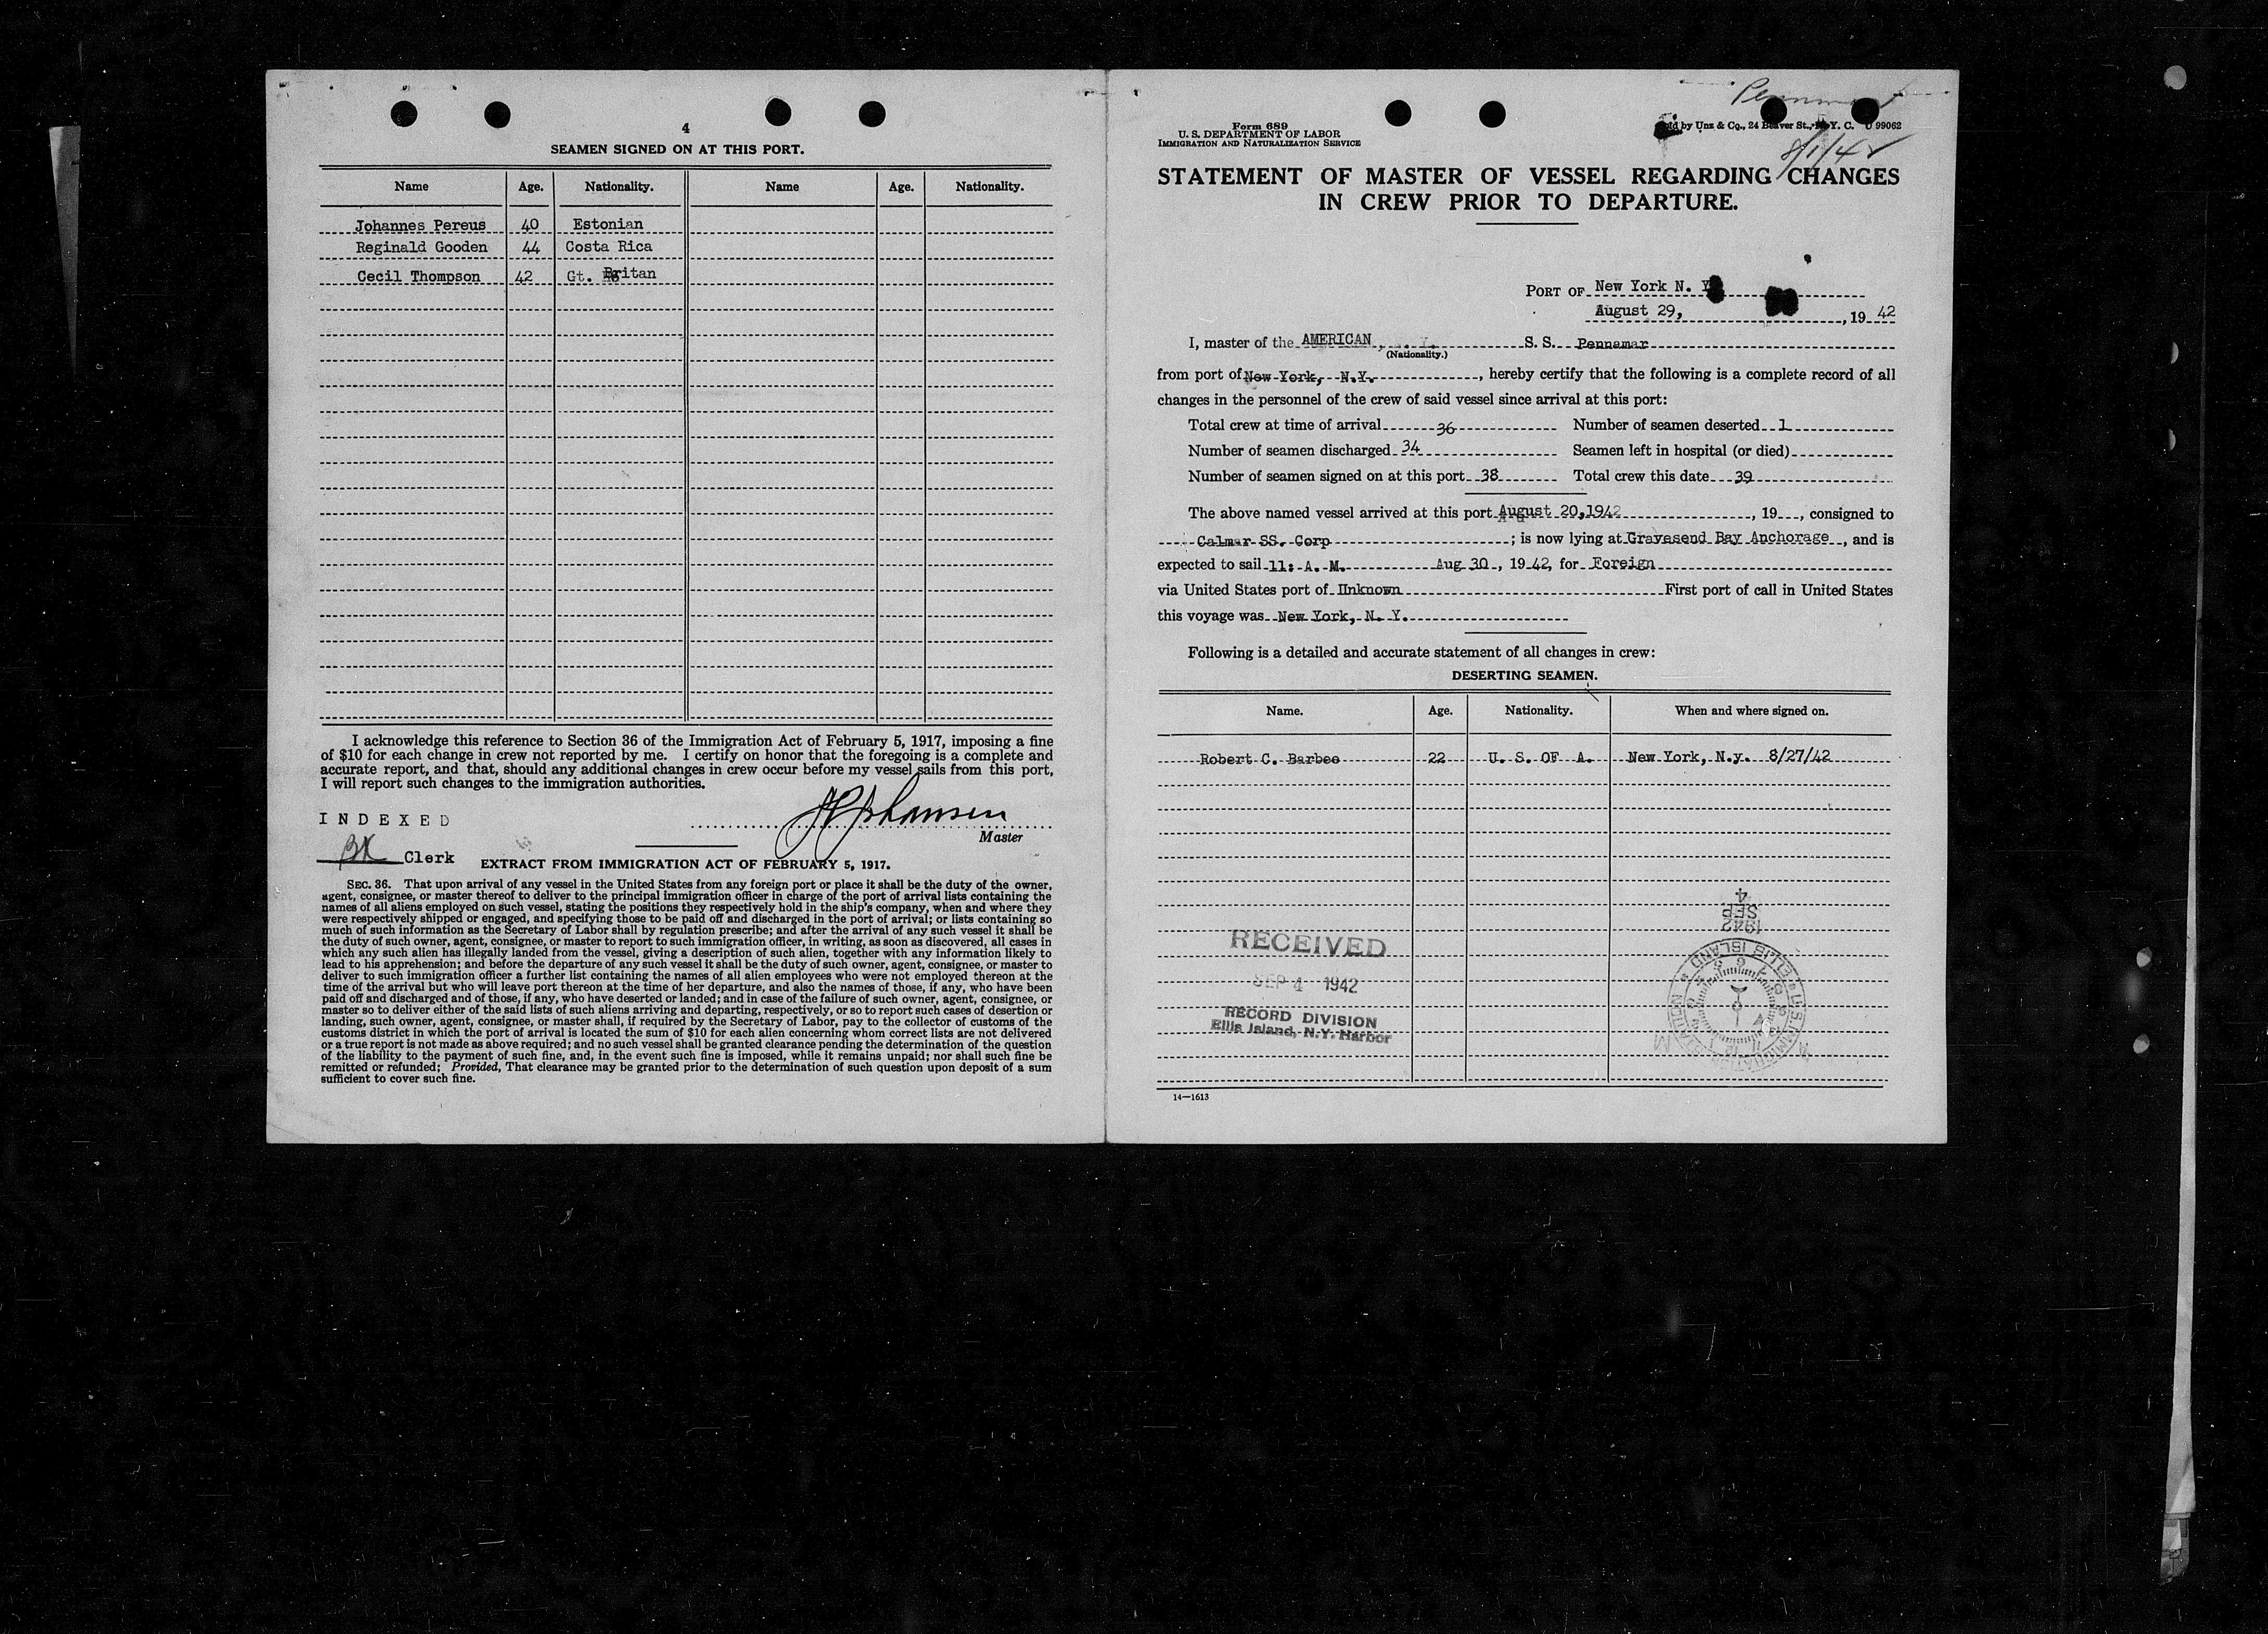 4
SEAMEN SIGNED ON AT THIS PORT.
Name Age. Nationality. Name Age. Nationality.
Johannes Pereus 40 Estonian
Reginald Gooden 44 Costa Rica
Cecil Thompson 42 Gt. Britan
I acknowledge this reference to Section 36 of the Immigration Act of February 5, 1917, imposing a fine
of $10 for each change in crew not reported by me. I certify on honor that the foregoing is a complete and
accurate report, and that, should any additional changes in crew occur before my vessel sails from this port,
I will report such changes to the immigration authorities.
INDEXED
Master
Clerk
EXTRACT FROM IMMIGRATION ACT OF FEBRUARY 5, 1917.
SEC. 36. That upon arrival of any vessel in the United States from any foreign port or place it shall be the duty of the owner,
agent, consignee, or master thereof to deliver to the principal immigration officer in charge of the port of arrival lists containing the
names of all aliens employed on such vessel, stating the positions they respectively hold in the ship's company, when and where they
were respectively shipped or engaged, and specifying those to be paid off and discharged in the port of arrival; or lists containing so
much of such information as the Secretary of Labor shall by regulation prescribe; and after the arrival of any such vessel it shall be
the duty of such owner, agent, consignee, or master to report to such immigration officer, in writing, as soon as discovered, all cases in
which any such alien has illegally landed from the vessel, giving a description of such alien, together with any information likely to
lead to his apprehension; and before the departure of any such vessel it shall be the duty of such owner, agent, consignee, or master to
deliver to such immigration officer a further list containing the names of all alien employees who were not employed thereon at the
time of the arrival but who will leave port thereon at the time of her departure, and also the names of those, if any, who have been
paid off and discharged and of those, if any, who have deserted or landed; and in case of the failure of such owner, agent, consignee, or
master so to deliver either of the said lists of such aliens arriving and departing, respectively, or so to report such cases of desertion or
landing, such owner, agent, consignee, or master shall, if required by the Secretary of Labor, pay to the collector of customs of the
customs district in which the port of arrival is located the sum of $10 for each alien concerning whom correct lists are not delivered
or a true report is not made as above required; and no such vessel shall be granted clearance pending the determination of the question
of the liability to the payment of such fine, and, in the event such fine is imposed, while it remains unpaid; nor shall such fine be
remitted or refunded; Provided, That clearance may be granted prior to the determination of such question upon deposit of a sum
sufficient to cover such fine.
Form 689
U. S. DEPARTMENT OF LABOR
IMMIGRATION AND NATURALIZATION SERVICE
by Unz & Co., 24 Beaver St., N. Y. C. U 99062
8/1/42
STATEMENT OF MASTER OF VESSEL REGARDING CHANGES
IN CREW PRIOR TO DEPARTURE.
PORT OF New York N. Y
August 29, , 19 42
I, master of the AMERICAN S. S. Pennamar
(Nationality.)
from port of New York, N.Y. , hereby certify that the following is a complete record of all
changes in the personnel of the crew of said vessel since arrival at this port:
Total crew at time of arrival 36 Number of seamen deserted 1
Number of seamen discharged 34 Seamen left in hospital (or died)
Number of seamen signed on at this port 38 Total crew this date 39
The above named vessel arrived at this port August 20,1942 , 19 , consigned to
Calmar SS. Corp ; is now lying at Gravesend Bay Anchorage , and is
expected to sail 11: A. M. Aug 30 , 19 42, for Foreign
via United States port of Unknown First port of call in United States
this voyage was New York, N. Y.
Following is a detailed and accurate statement of all changes in crew:
DESERTING SEAMEN.
Name. Age. Nationality. When and where signed on.
Robert C. Barbee 22 U. S. OF A. New York, N.y. 8/27/42
1942
SEP
4
RECEIVED
SEP 4 1942
RECORD DIVISION
Ellis Island, N.Y. Harbor
U.S. IMMIGRATION STATION ELLIS ISLAND
14—1613